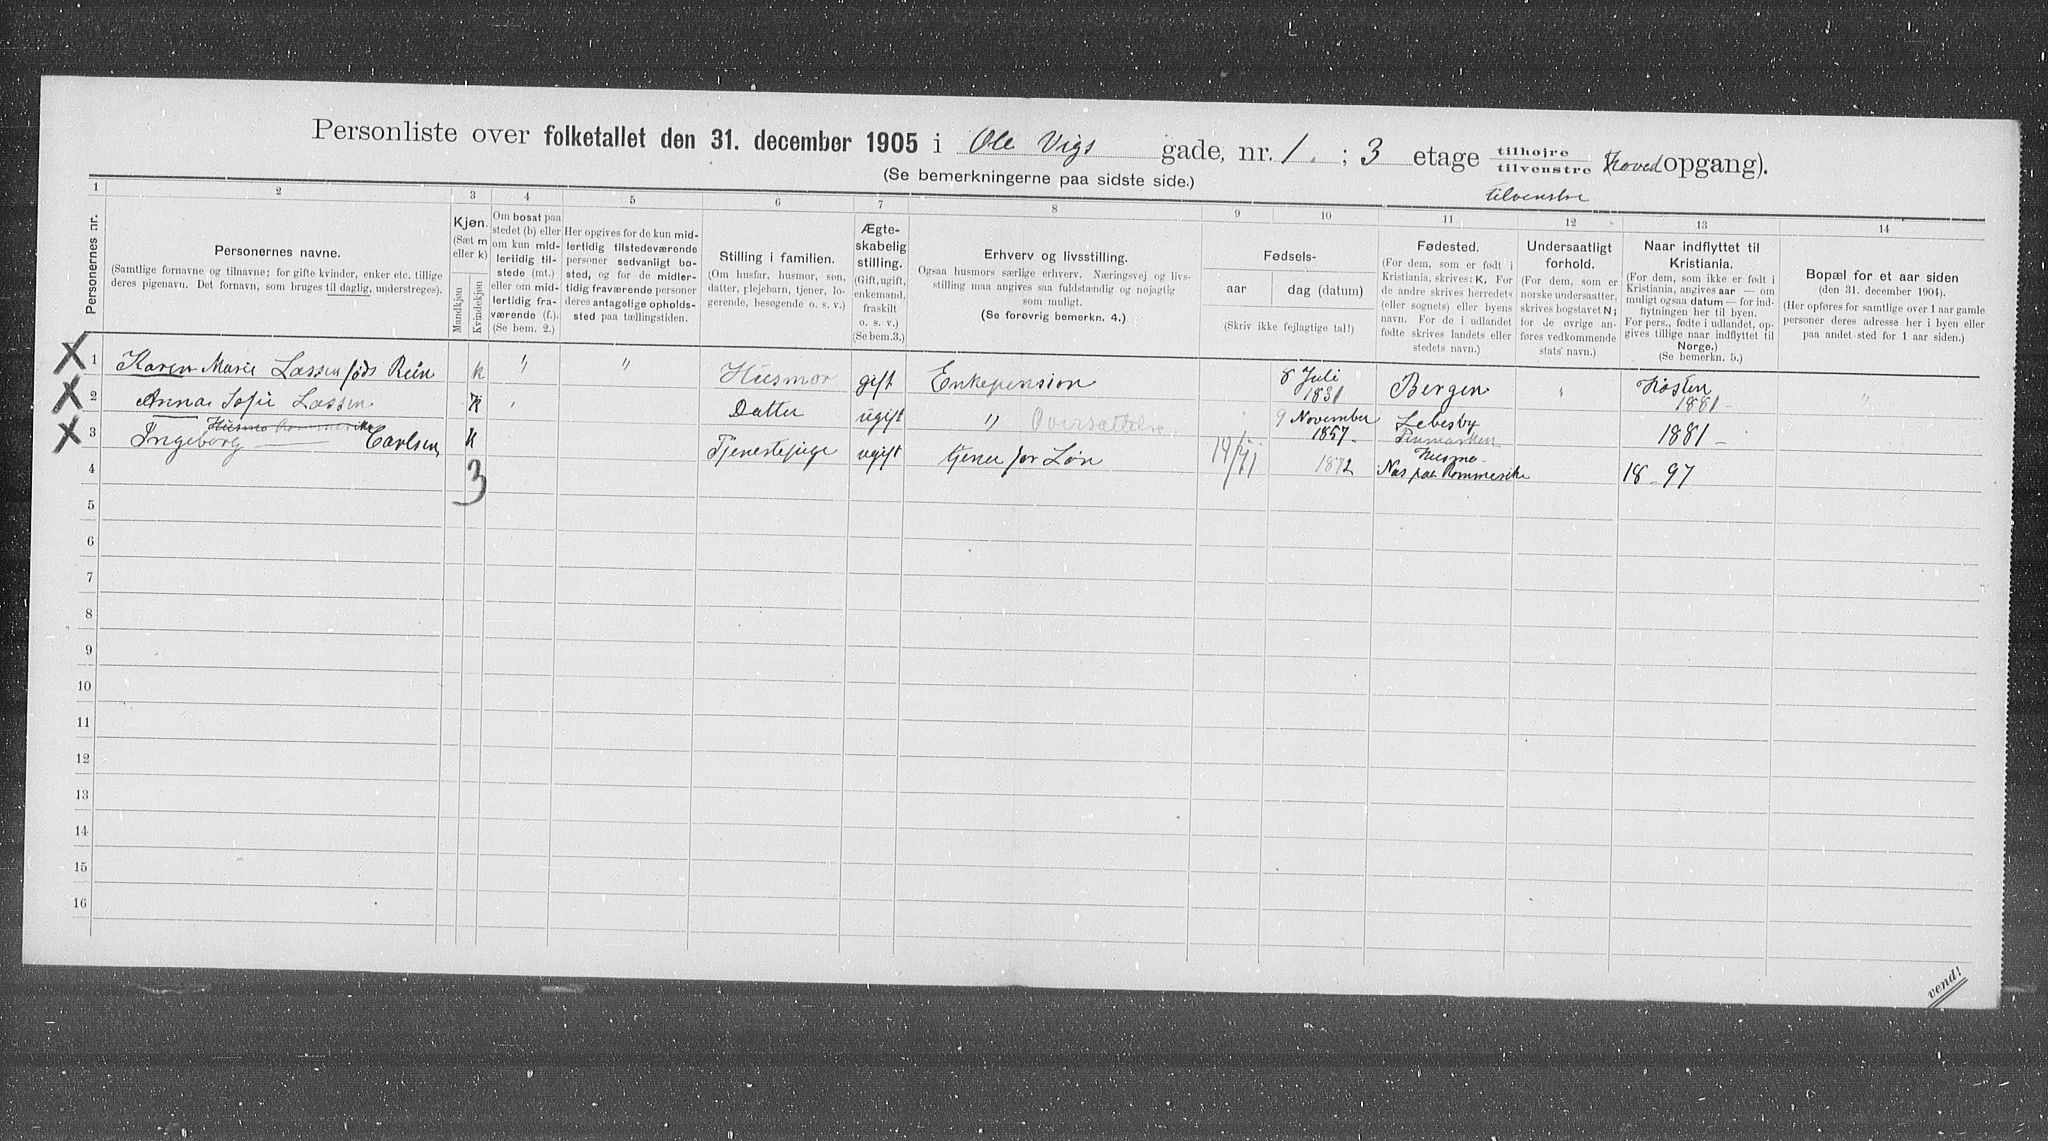 Personliste over folketallet den 31. december 1905 i Ole Vigs gade, nr. 1. ; 3 etage tilhøjre tilvenstre Hovedopgang).
(Se bemerkningerne paa sidste side.)
tilvenstre
1 2 3 4 5 6 7 8 9 10 11 12 13 14
Personernes nr.
Personernes navne.
(Samtlige fornavne og tilnavne; for gifte kvinder, enker etc. tillige
deres pigenavn. Det fornavn, som bruges til daglig, understreges).
Kjøn.
(Sæt m
eller k)
Mandkjøn
Kvindekjøn
Om bosat paa
stedet (b) eller
om kun mid-
lertidig til-
stede (mt.)
eller om mid-
lertidig fra-
værende (f.).
(Se bem. 2.)
Her opgives for de kun mid-
lertidig tilstedeværende
personer sedvanligt bo-
sted, og for de midler-
tidig fraværende personer
deres antagelige opholds-
sted paa tællingstiden.
Stilling i familien.
(Om husfar, husmor, søn,
datter, plejebarn, tjener, lo-
gerende, besøgende o. s. v.)
Ægte-
skabelig
stilling.
(Gift, ugift,
enkemand,
fraskilt
o. s. v.)
(Se bem.3.)
Erhverv og livsstilling.
Ogsaa husmors særlige erhverv. Næringsvej og livs-
stilling maa angives saa fuldstændig og nøjagtig
som muligt.
(Se forøvrig bemerkn. 4.)
Fødsels-
aar
dag (datum)
(Skriv ikke fejlagtige tal!)
Fødested.
(For dem, som er født i
Kristiania, skrives: K. For
de andre skrives herredets
(eller sognets) eller byens
navn. For de i udlandet
fødte skrives landets eller
stedets navn.)
Undersaatligt
forhold.
(For dem, som er
norske undersaatter,
skrives bogstavet N;
for de øvrige an-
føres vedkommende
stats' navn.)
Naar indflyttet til
Kristiania.
(For dem, som ikke er født i
Kristiania, angives aar — om
muligt ogsaa datum — for ind-
flytningen her til byen.
For pers., fødte i udlandet, op-
gives tillige naar indflyttet til
Norge.)
(Se bemerkn. 5.)
Bopæl for et aar siden
(den 31. december 1904).
(Her opføres for samtlige over 1 aar gamle
personer deres adresse her i byen eller
paa andet sted for 1 aar siden.)
X 1 Karen Marie Lassen føds Rein k " " Husmor gift Enkepension 8 Juli 1831 Bergen " Høsten 1881
X 2 Anna Sofie Lassen K " Datter ugift " Oversættelse. 9 November 1857 Lebesby Finmarken 1881
X 3 Ingeborg Carlsen K Tjenestepige ugift tjener for Løn 1872 Nes paa Rommerike 1897
4
3
5
6
7
8
9
10
11
12
13
14
15
16
vend!